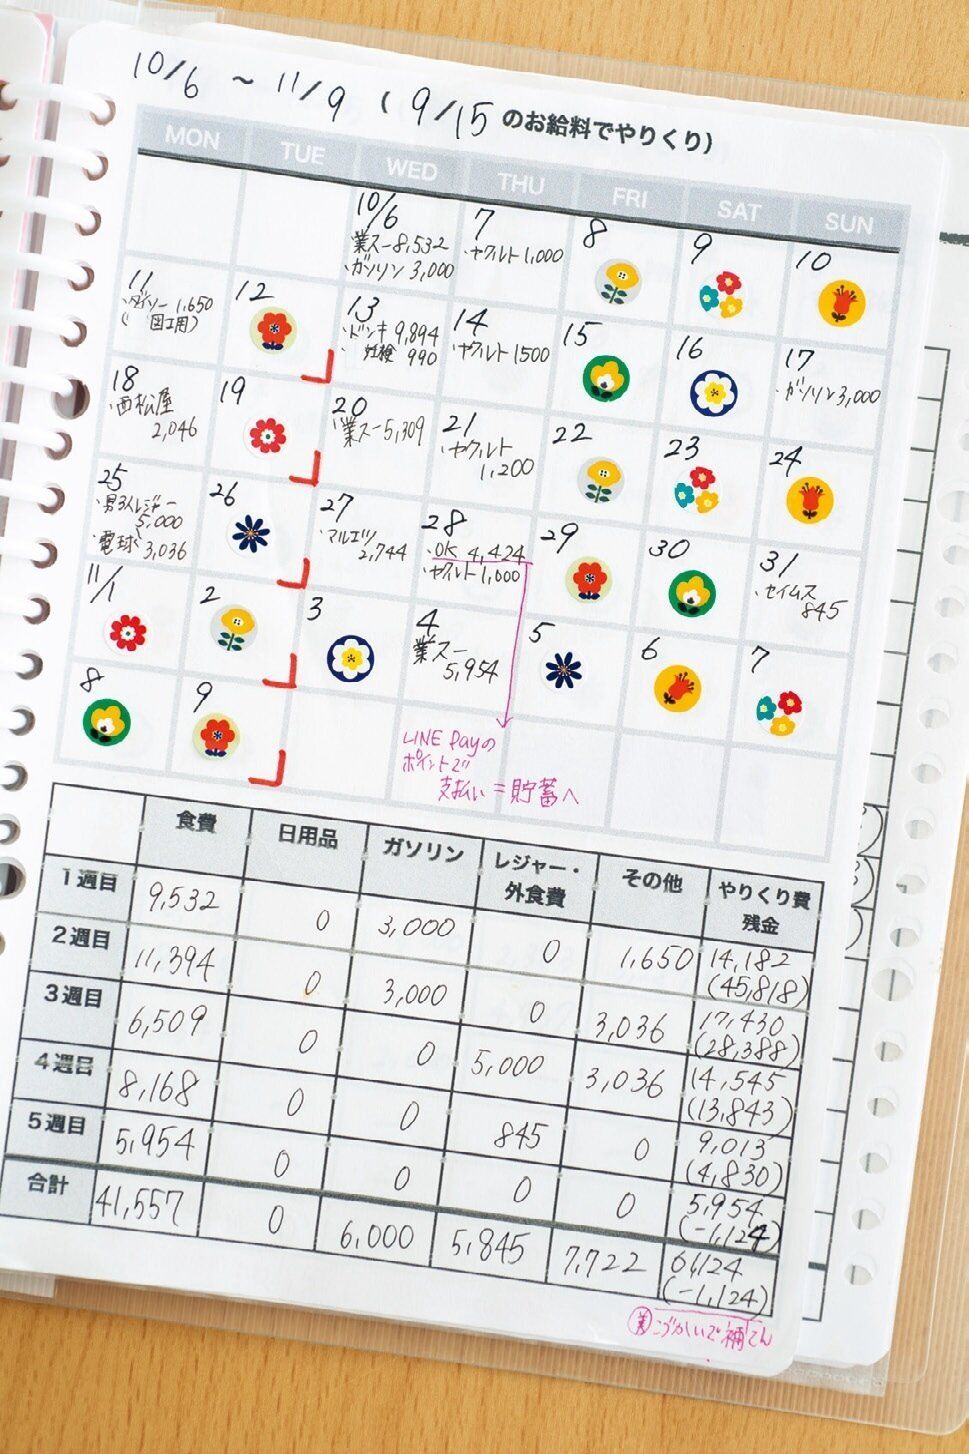 10/6 ~ 11/9 (9/15のお給料でやりくり)
MON TUE WED THU FRI SAT SUN
10/6
業スー 8,532
ガソリン 3,000
7
ヤクルト 1,000
8
9
10
11
・ダイソー 1,650
(図工用)
12
13
・ドンキ 9,894
・妊検 990
14
・ヤクルト 1500
15
16
17
・ガソリン 3,000
18
・西松屋
2,046
19
20
・業スー 5,309
21
・ヤクルト
1,200
22
23
24
25
・男3人レジャー
5,000
・電球 3,036
26
27
・マルエツ
2,744
28
・OK 4,424
・ヤクルト 1,000
29
30
31
・セイムス
845
11/1
2
3
4
業スー
5,954
5
6
7
8
9
LINE Payの
ポイントで
支払い=貯蓄へ
食費 日用品 ガソリン レジャー・外食費 その他 やりくり費残金
1週目 9,532 0 3,000 0 1,650 14,182 (45,818)
2週目 11,394 0 3,000 0 3,036 17,430 (28,388)
3週目 6,509 0 0 5,000 3,036 14,545 (13,843)
4週目 8,168 0 0 845 0 9,013 (4,830)
5週目 5,954 0 0 0 0 5,954 (-1,124)
合計 41,557 0 6,000 5,845 7,722 61,124 (-1,124)
こづかいで補てん